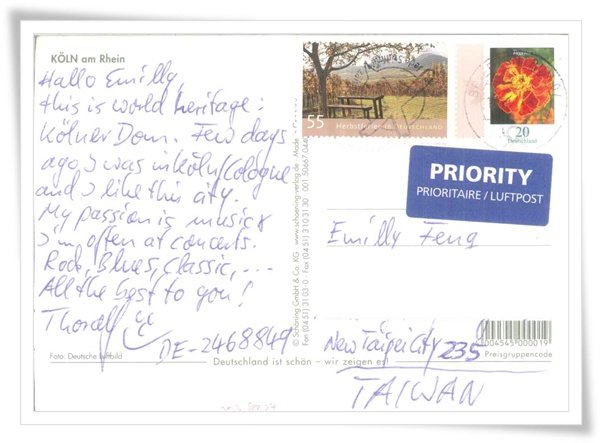 KÖLN am Rhein
Hallo Emilly,
this is world heritage:
Kölner Dom. Few days
ago I was in Köln/Cologne
and I like this city.
My passion is music &
I'm often at concerts.
Rock, Blues, Classic, ...
All the best to you!
DE-2468849
Foto: Deutsche Luftbild
Deutschland ist schön – wir zeigen es!
© Schöning GmbH & Co. KG · www.schoening-verlag.de · Made
Fax (04 51) 3 10 31 30
55
Herbstferien in DEUTSCHLAND
20
Deutschland
PRIORITY
PRIORITAIRE / LUFTPOST
Emilly Feng
New Taipei City 235
TAIWAN
4004545 000019
Preisgruppencode